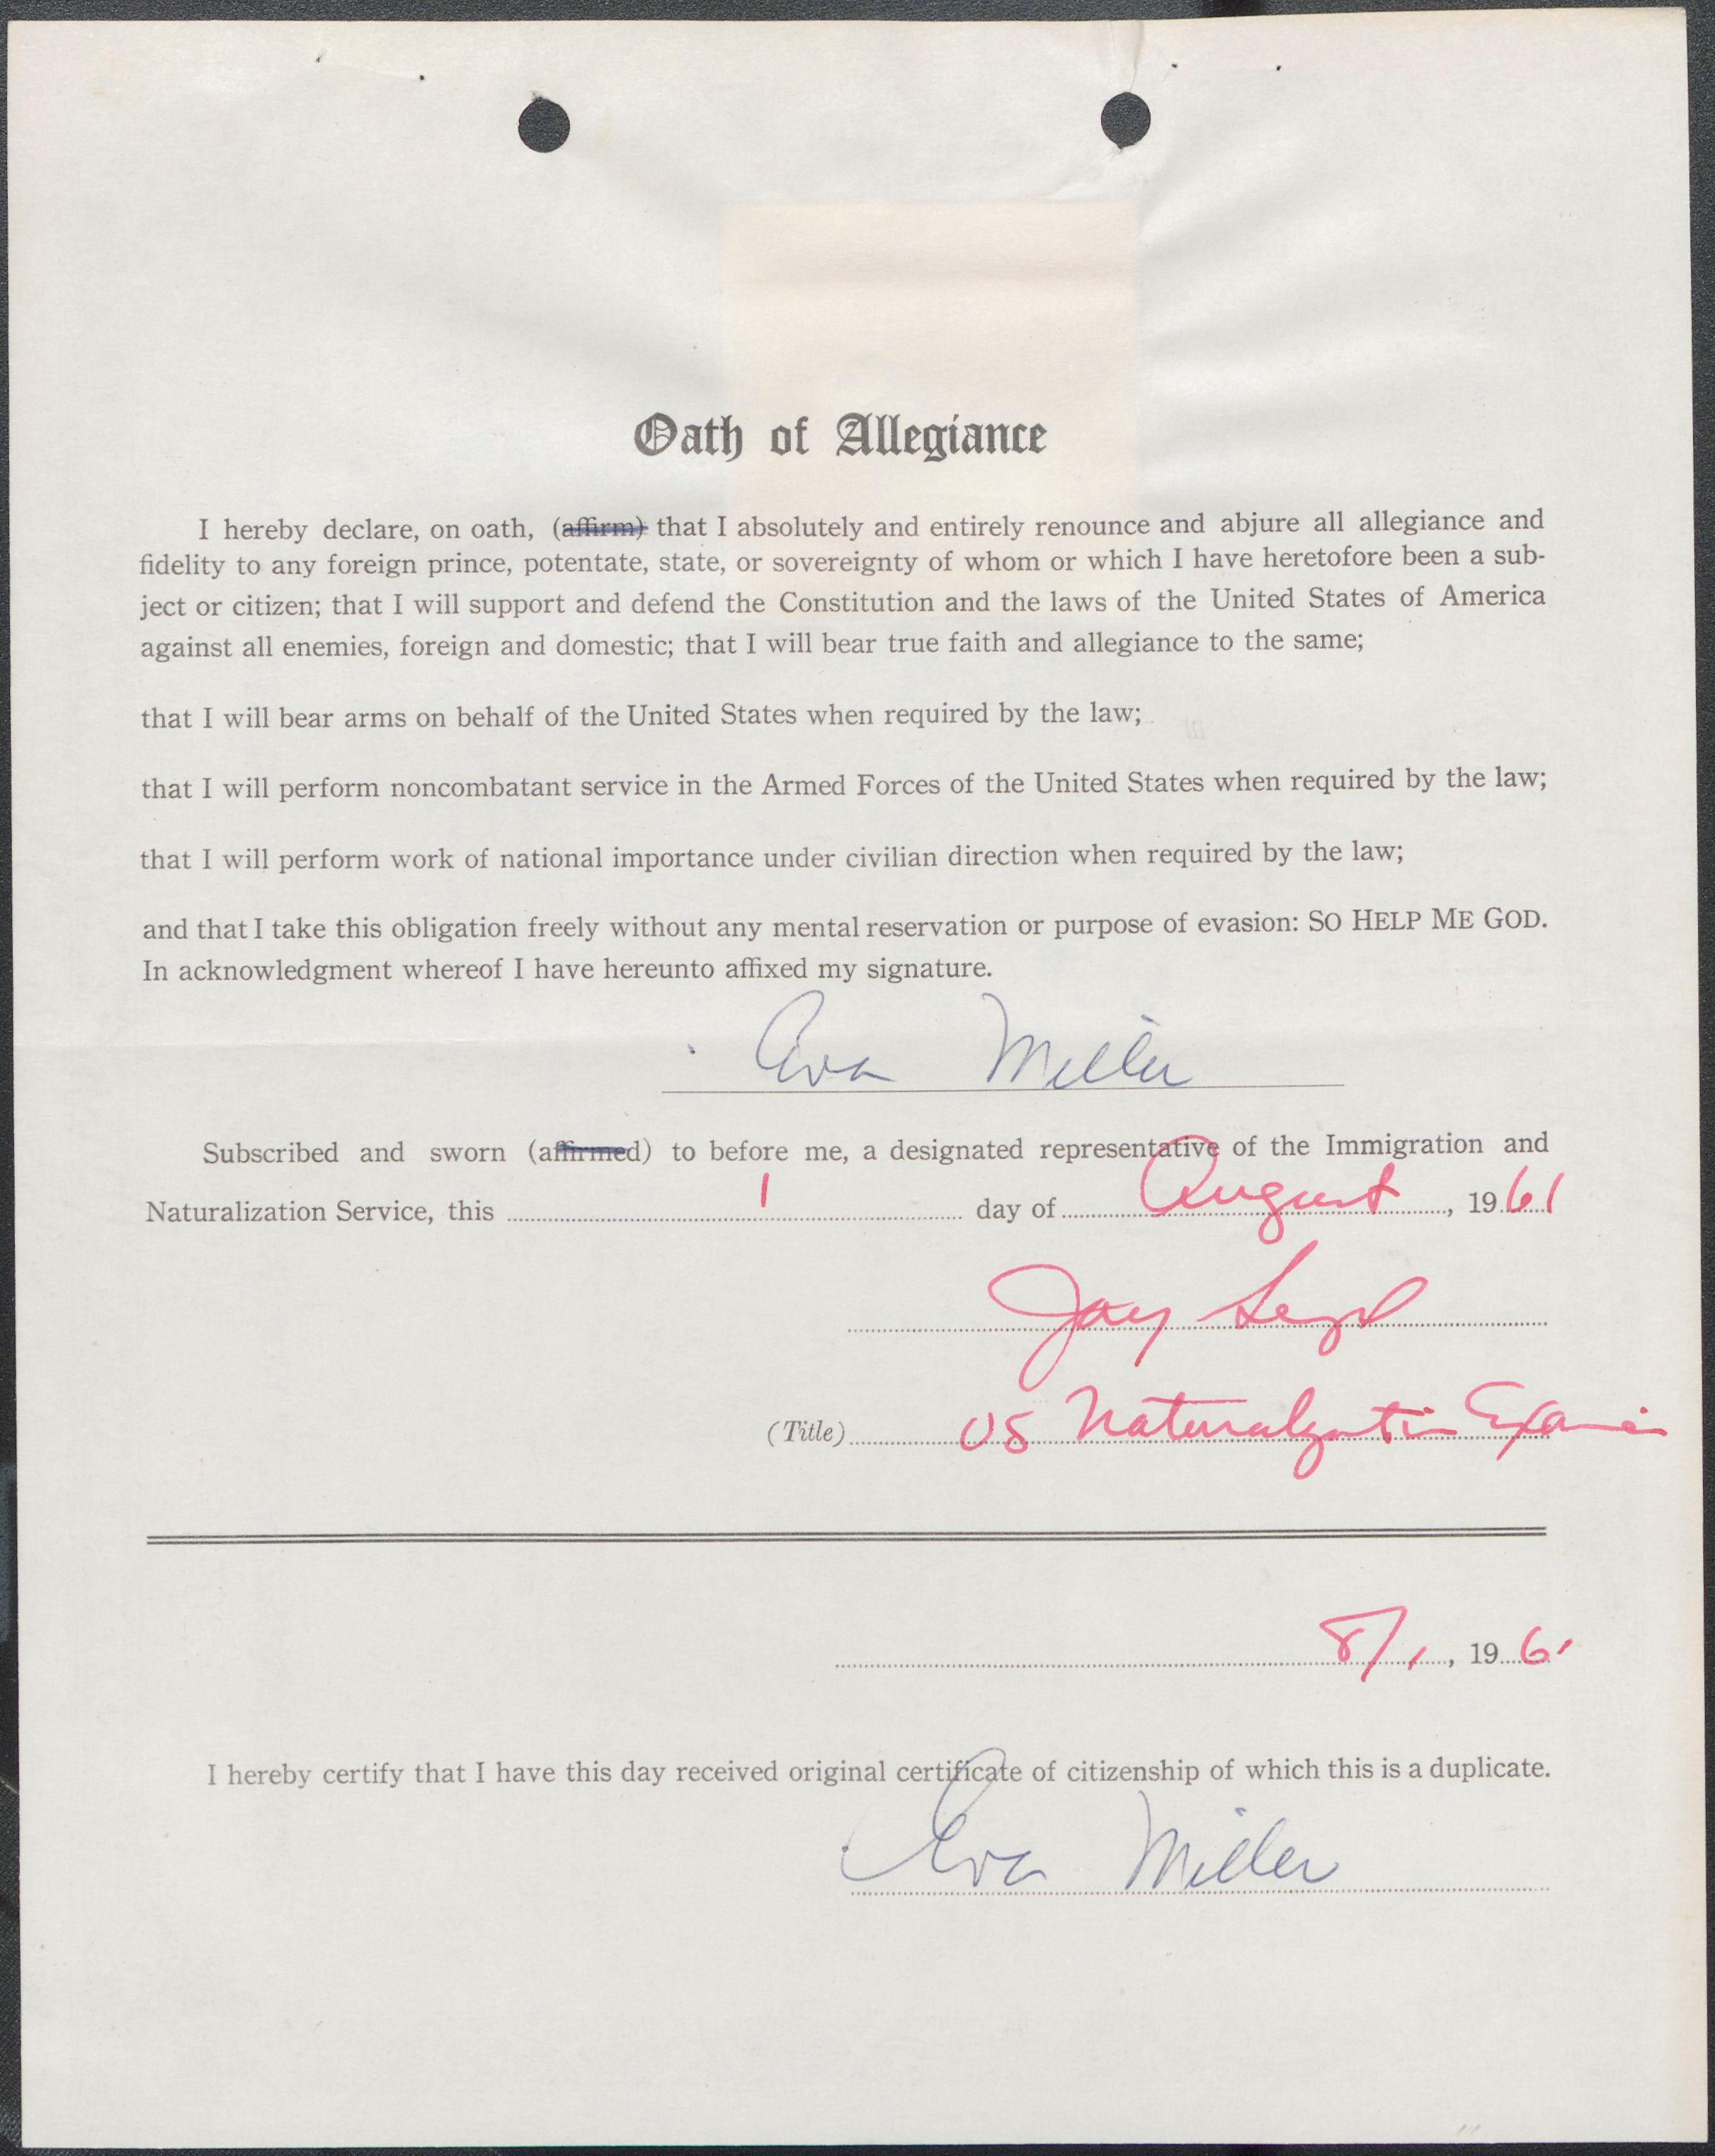 Oath of Allegiance
I hereby declare, on oath, (affirm) that I absolutely and entirely renounce and abjure all allegiance and
fidelity to any foreign prince, potentate, state, or sovereignty of whom or which I have heretofore been a sub-
ject or citizen; that I will support and defend the Constitution and the laws of the United States of America
against all enemies, foreign and domestic; that I will bear true faith and allegiance to the same;
that I will bear arms on behalf of the United States when required by the law;
that I will perform noncombatant service in the Armed Forces of the United States when required by the law;
that I will perform work of national importance under civilian direction when required by the law;
and that I take this obligation freely without any mental reservation or purpose of evasion: SO HELP ME GOD.
In acknowledgment whereof I have hereunto affixed my signature.
Eva Miller
Subscribed and sworn (affirmed) to before me, a designated representative of the Immigration and
Naturalization Service, this 1 day of August, 1961
Jay
(Title) US Naturalization
8/1, 1961
I hereby certify that I have this day received original certificate of citizenship of which this is a duplicate.
Eva Miller